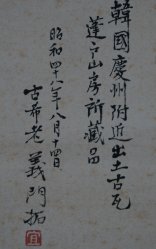 韓國慶州附近出土古瓦
蓬戸山房所藏品
昭和四十八年八月十四日
古希老 義門拓